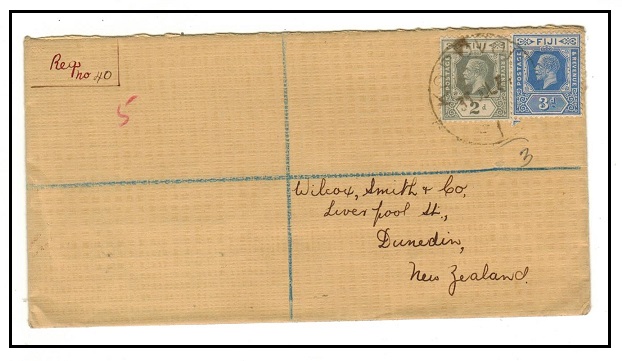 Reg
no 40
5
FIJI
POSTAGE & REVENUE
2d
FIJI
POSTAGE & REVENUE
3d
3
Wilcox, Smith & Co,
Liverpool St.,
Dunedin,
New Zealand.